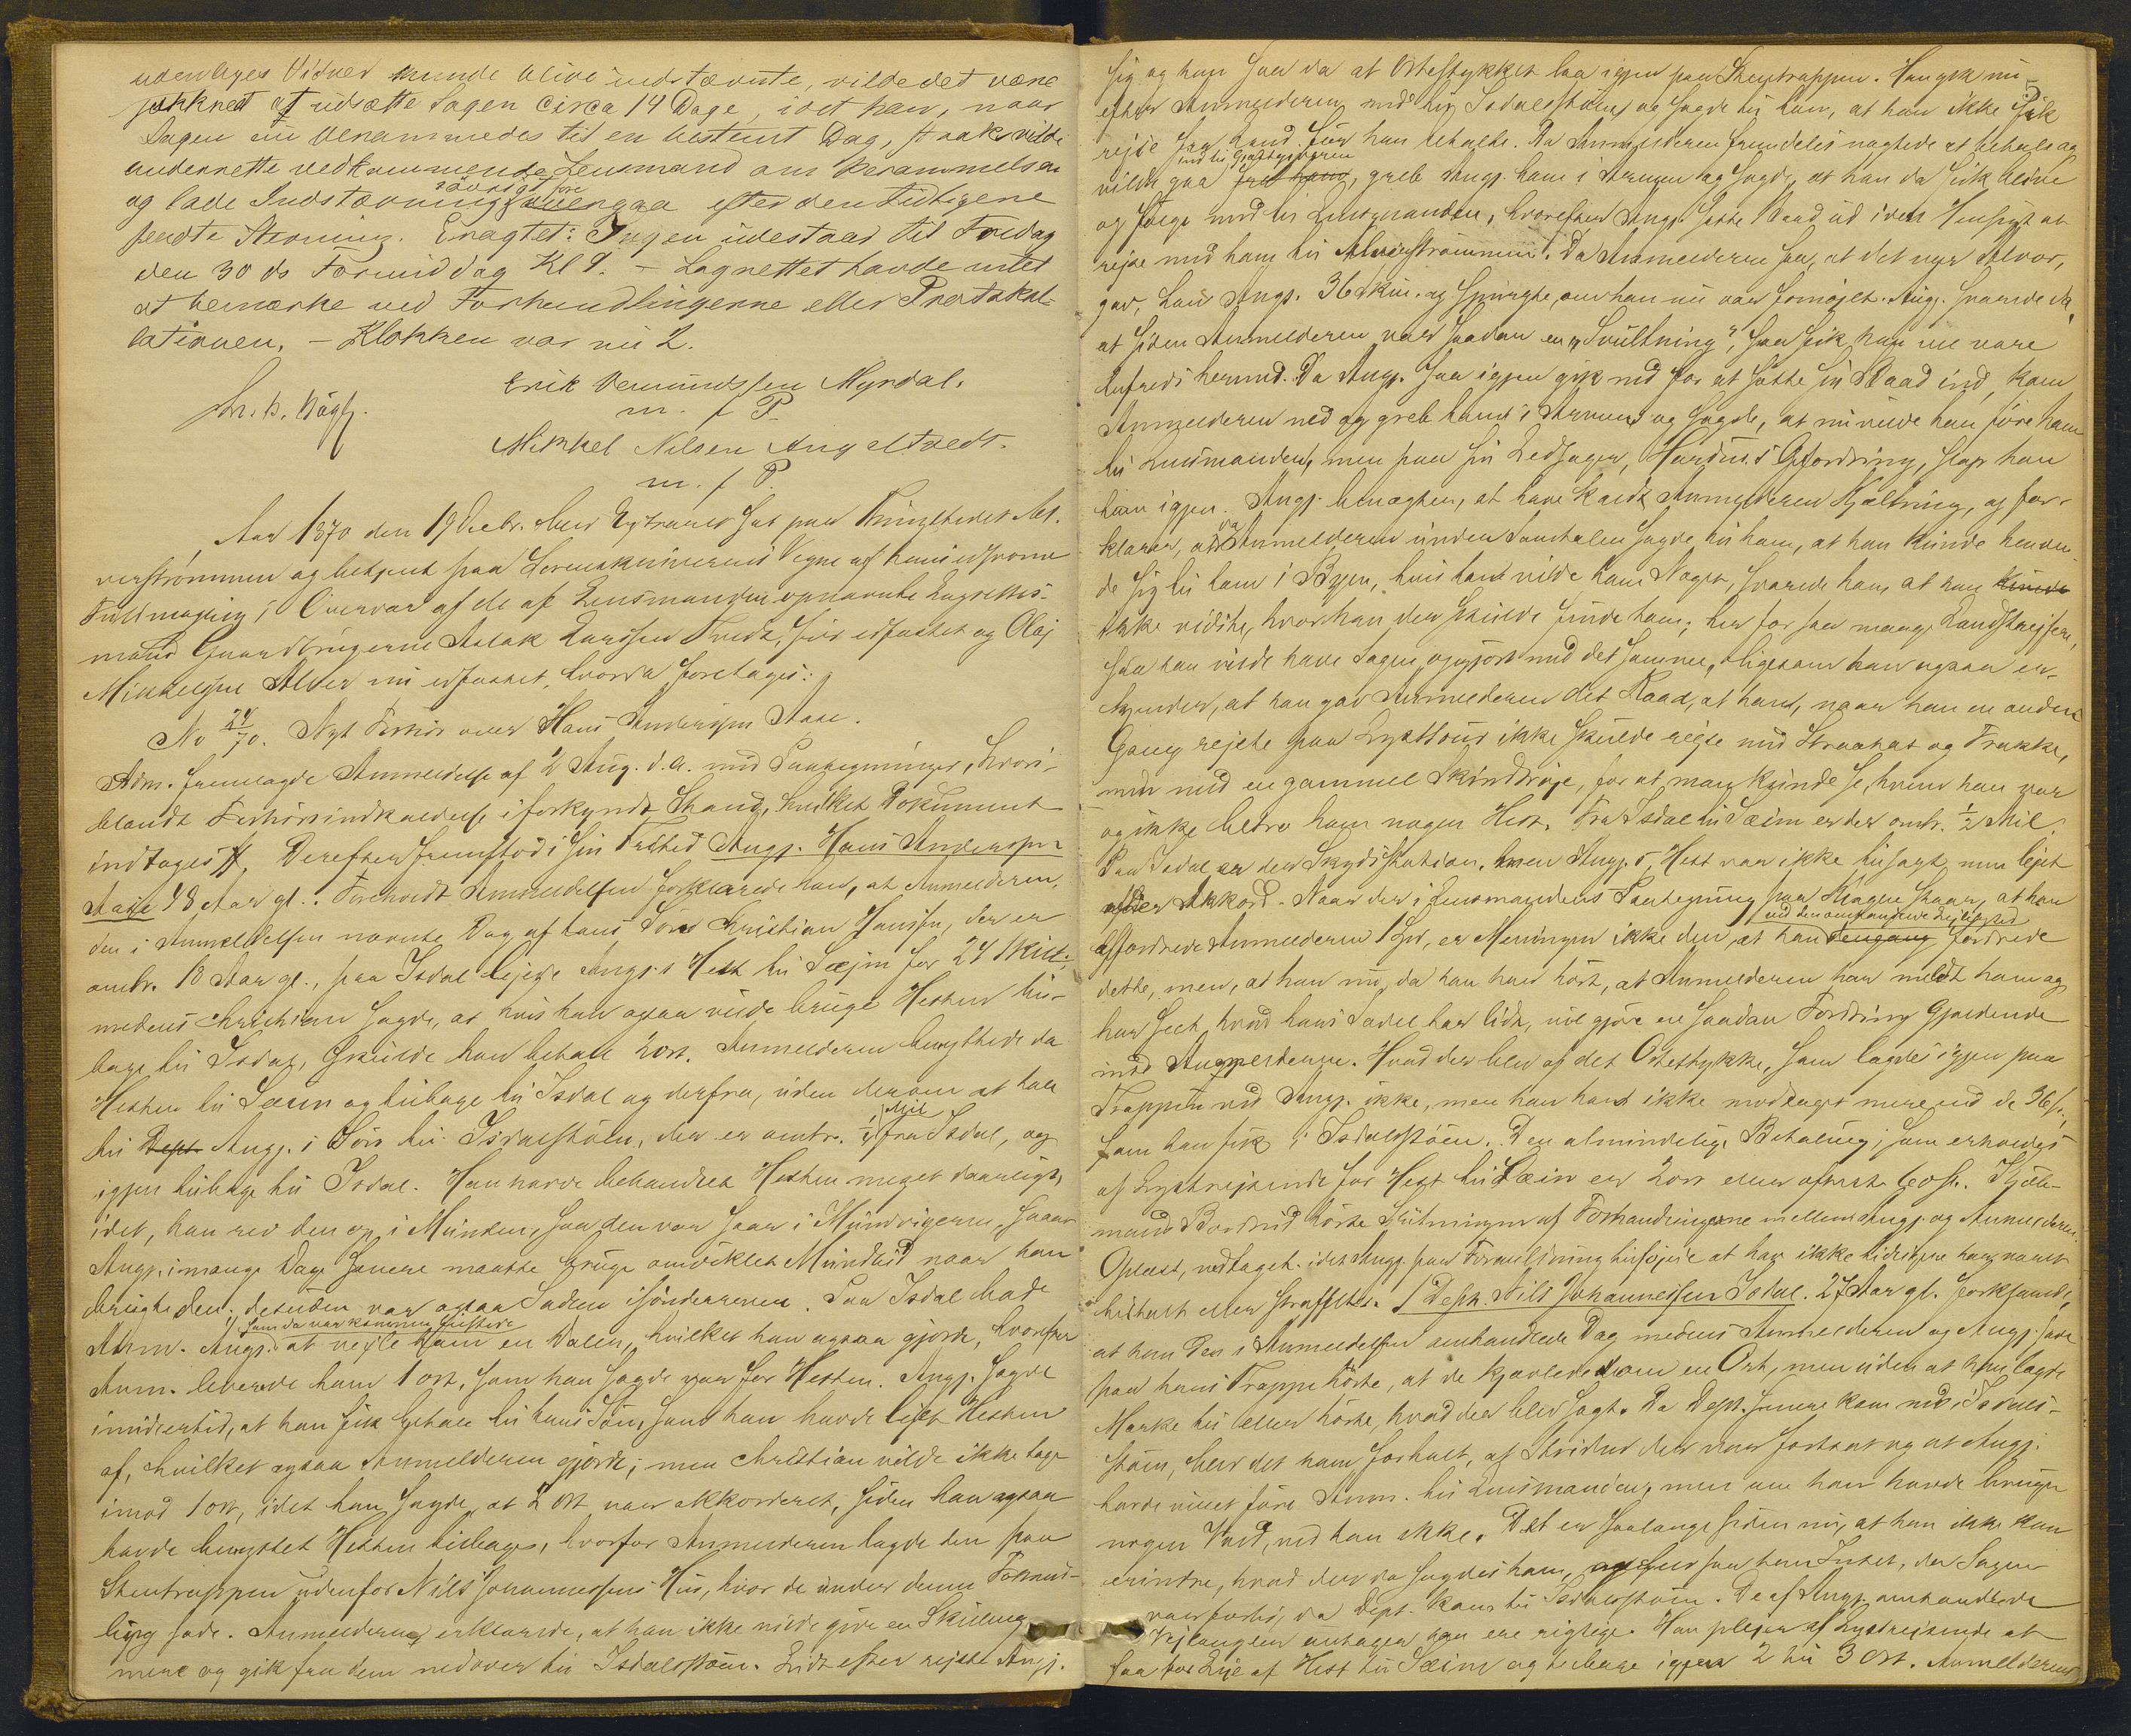 udenbyges Vidner kunde blive indstævnte, vilde det være
paakrævet at udsætte Sagen circa 14 Dage, idet han, naar
Sagen nu berammedes til en bestemt Dag, strax vilde
underrette vedkommende Lensmand om Berammelsen
og lade Indstævning foregaa efter den tidligere
sendte Stevning. Eragtet: Sagen udestaar til Fredag
den 30 ds Formiddag Kl 9. – Lagrettet havde intet
at bemærke ved Forhandlingerne eller Protokol-
lationen. – Klokken var nu 2.
Erik Vemundssen Myrdal.
m. f P.
Mikkel Nilsen Angeltvedt.
m. f P.
Aar 1870 den 19 Decbr. blev Extraret sat paa Thingstedet Al-
verstrømmen og betjent paa Sorenskriverens Vegne af hans edsvorne
Fuldmægtig i Overvær af de af Lensmanden opnævnte Lagrettes-
mænd Gaardbrugerne Aslak Larssen Tvedt, før edfæstet og Olaj
Mikkelsen Alver nu edfæstet, hvorda foretages:
No 24/70. Nyt Forhør over Hans Anderssen Aase.
Adm. fremlagde Anmeldelse af 2 Aug. d.A. med Paategninger, hvori-
blandt Forhørsindkaldelse i forkyndt Stand, hvilket Dokument
indtages #. Derefter fremstod i sin Frihed Angj. Hans Anderssen
Aase 48 Aar gl. Foreholdt Anmeldelsen forklarede han, at Anmelderen
den i Anmeldelsen nævnte Dag af hans Søn Kristian Hanssen, der er
omtr. 18 Aar gl., paa Isdal lejede Angj.s Hest til Sæim for 24 Skill.
medens Christian sagde, at hvis han ogsaa vilde bruge Hesten til-
bage til Isdal, skulde han betale 2 ort. Anmelderen benyttede da
Hesten til Sæim og tilbage til Isdal og derfra, uden derom at tale
til Dept. Angj.s Søn til Isdalsstøen, der er omtr. 1/4 Mil fra Isdal, og
igjen tilbage til Isdal. Han havde behandlet Hesten meget daarligt,
idet han rev den op i Munden, saa den var saar i Mundvigerne, saa
Angj. i mange Dage senere maatte bruge omviklet Mundbid naar han
brugte den; desuden var ogsaa Sadlen isønderreven. Paa Isdal bad
Anm. Angj. som da var kommen tilstede at vexle ham en Daler, hvilket han ogsaa gjorde, hvorefter
Anm. leverede ham 1 ort, som han sagde var for Hesten. Angj. sagde
imidlertid, at han fik betale til hans Søn, som han havde lejet Hesten
af, hvilket ogsaa Anmelderen gjorde; men Christian vilde ikke tage
imod 1 ort, idet han sagde, at 2 ort var akkorderet, siden han ogsaa
havde benyttet Hesten tilbage, hvorfor Anmelderen lagde den paa
Stentrappen udenfor Nils Johannessens Hus, hvor de under denne Forhand-
ling sade. Anmelderen erklærede, at han ikke vilde give en Skilling
mere og gik fra dem nedover til Isdalsstøen. Lidt efter rejste Angj.
sig og han saa da at Ortestykket laa igjen paa Stentrappen. Han gik nu
efter Anmelderen ned til Isdalsstøen og sagde til ham, at han ikke fik
rejse fra Land før han betalte. Da Anmelderen fremdeles nægtede at betale og
vilde gaa ind til Gjæstgiveren fra ham, greb Angj. ham i Armen og sagde, at han da fik blive
og følge med til Lensmanden, hvorefter Angj. satte Baad ud i den Hensigt at
rejse med ham til Alverstrømmen. Da Anmelderen saa, at det var Alvor,
gav han Angj. 36 Skill. og spurgte, om han nu var fornøjet. Angj. svarede da,
at siden Anmelderen var saadan en "Svultning", saa fik han nu være
tilfreds hermed. Da Angj. saa igjen gik ned for at sætte sin Baad ind, kom
Anmelderen ned og greb ham i Armen og sagde, at nu vilde han føre ham
til Lensmanden, men paa sin Ledsager, Opfordring, slap han
ham igjen. Angj. benægter, at have kaldt Anmelderen Kjæltring, og for-
klarer, at da Anmelderen under Samtalen sagde til ham, at han kunde henven-
de sig til ham i Byen, hvis han vilde ham Noget, svarede han, at han kunde
ikke vidste, hvor han der skulde finde ham; her for saa mange Landstrygere,
saa han vilde have Sagen opgjort med det samme, ligesom han ogsaa er-
kjender, at han gav Anmelderen det Raad, at han, naar han en anden
Gang rejste paa Lysttour ikke skulde rejse med Straahat og Frakke,
men med en gammel Skindtrøje, for at man kunde se, hvem han var
og ikke betro ham nogen Hest. Fra Isdal til Sæim er der omtr. 1/2 Mil.
Paa Isdal er der Skydsstation, men Angj.s Hest var ikke tilsagt, men lejet
efter Akkord. Naar der i Lensmandens Paategning paa Klagen staar, at han
affordrede Anmelderen 1 Spd, er Meningen ikke den, at han ved den omhandlede Lejlighed dengang fordrede
dette, men, at han nu, da han har hørt, at Anmelderen har meldt ham og
har seet, hvad hans Sadel har lidt, vil gjøre en saadan Fordring gjældende
mod Anmelderen. Hvad der blev af det Ortestykke, som lagdes igjen paa
Trappen ved Angj. ikke, men han har ikke modtaget mere end de 36 s.,
som han fik i Isdalsstøen. Den almindelige Betaling, som erholdes
af Lystrejsende for Hest til Sæim er 2 ort eller oftest 60 s. Kjøb-
mand hørte Slutningen af Forhandlingerne mellem Angj. og Anmelderen.
Oplæst, vedtaget. idet Angj. paa Foranledning tilføjede at han ikke tidligere har været
tiltalt eller straffet. / Dept. Nils Johannessen Isdal. 27 Aar gl. forklarede,
at han den i Anmeldelsen omhandlede Dag medens Anmelderen og Angj. sad
paa hans Trappe hørte, at de kjævlede om en Ort, men uden at han lagde
Mærke til eller hørte, hvad der blev sagt. Da Dept. senere kom ned i Isdals-
støen, blev det ham fortalt, at Striden der var fortsat og at Angj.
havde villet føre Anm. til Lensmanden, men om han havde brugt
nogen Vold, ved han ikke. Det er saalænge siden nu, at han ikke kan
erindre, hvad der da sagdes ham, og selv saa han Intet, da Sagen
var forbi, da Dept. kom til Isdalsstøen. De af Angj. omhandlede
Vejlængder antager han ere rigtige. Han plejer af Lystrejsende at
faa for Leje af Hest til Sæim og tilbage igjen 2 til 3 Ort. Anmelderen